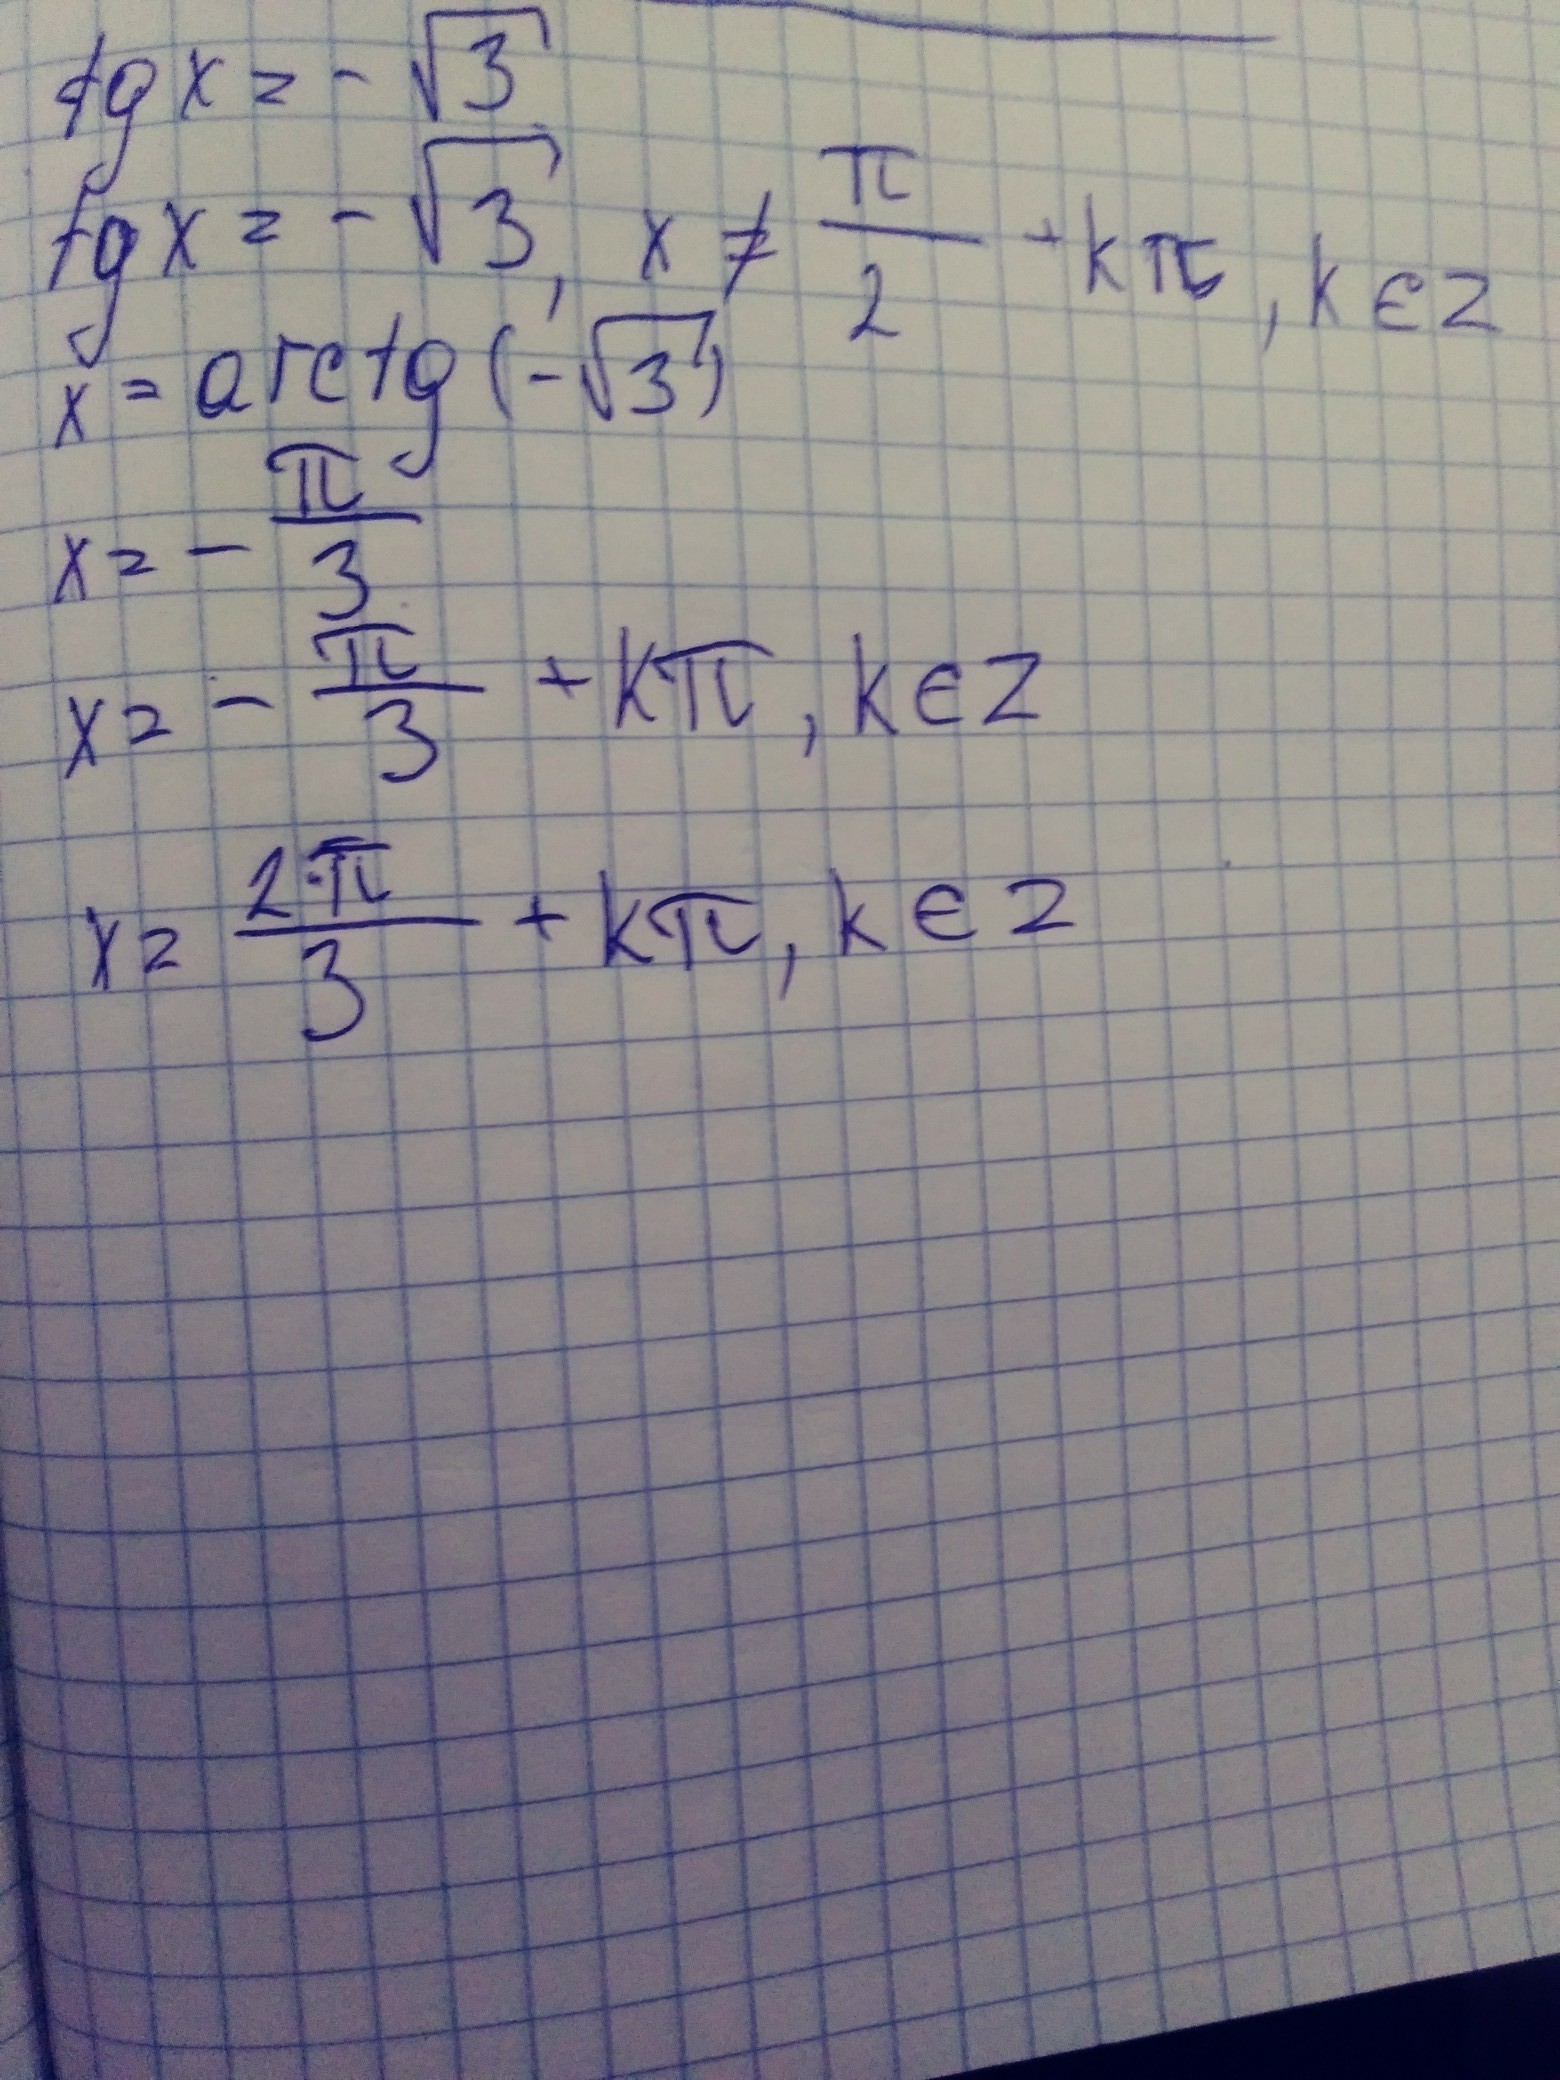 tg x = - √3
tg x = - √3, x ≠ π/2 + kπ, k ∈ Z
x = arctg (-√3)
x = - π/3
x = - π/3 + kπ, k ∈ Z
x = 2π/3 + kπ, k ∈ Z